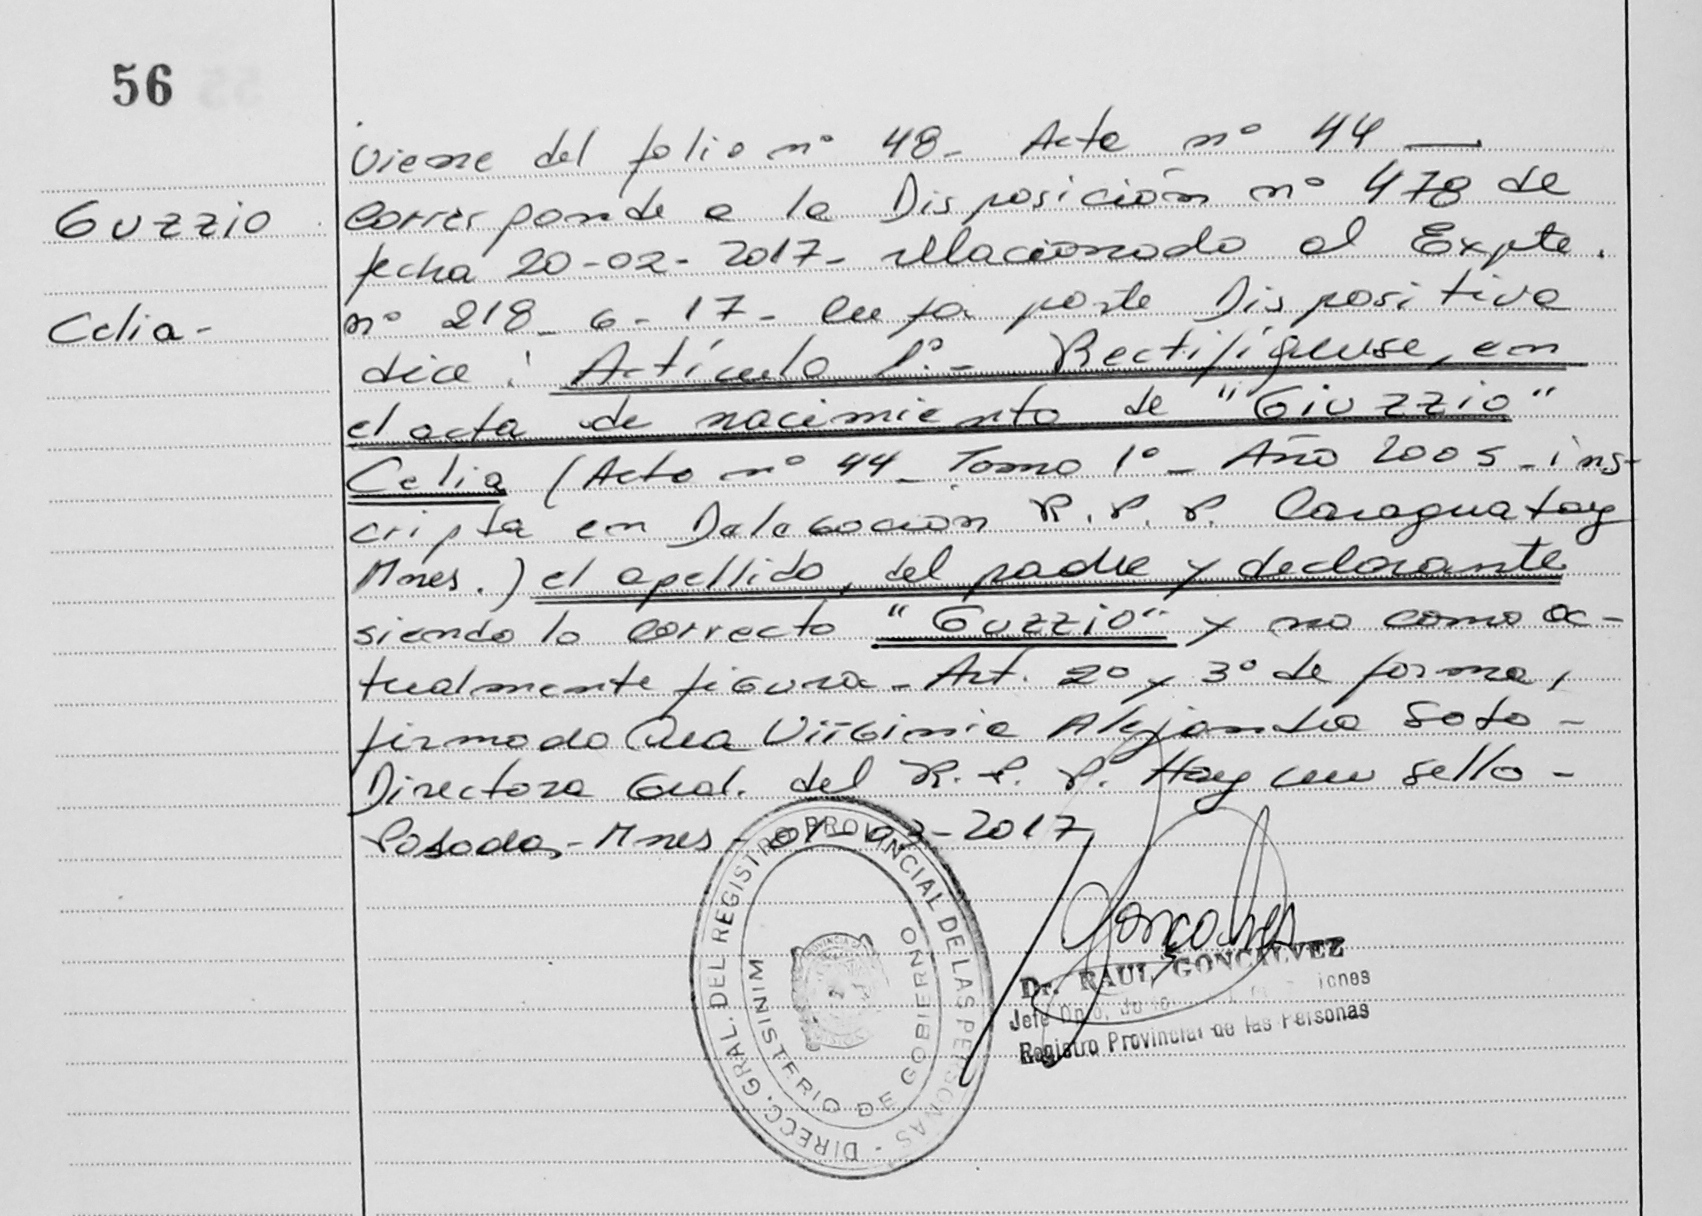 56
Guzzio
Celia-
Viene del folio nº 48- Acta nº 44 —
Corresponde a la Disposición nº 478 de
fecha 20-02-2017- rellacionado al Expte.
nº 218-6-17- Cuya parte Dispositiva
dice: Artículo 1º- Rectifíquese, en
el acta de nacimiento de "Giuzzio"
Celia (Acta nº 44 Tomo 1º- Año 2005-ins-
cripta en Delegación R.P.P. Caraguatay
Mnes.) el apellido, del padre y declarante
siendo lo correcto "Guzzio" y no como ac-
tualmente figura- Art. 2º y 3º de forma,
firmado Virginia Alejandra Soto-
Directora Gral. del R.P.P. Hay un sello-
Posadas- Mnes- 01-03-2017
DIRECC. GRAL. DEL REGISTRO PROVINCIAL DE LAS PERSONAS -
MINISTERIO DE GOBIERNO
PROVINCIA DE
MISIONES
Dr. RAUL GONCALVEZ
Jefe Dpto.
Registro Provincial de las Personas